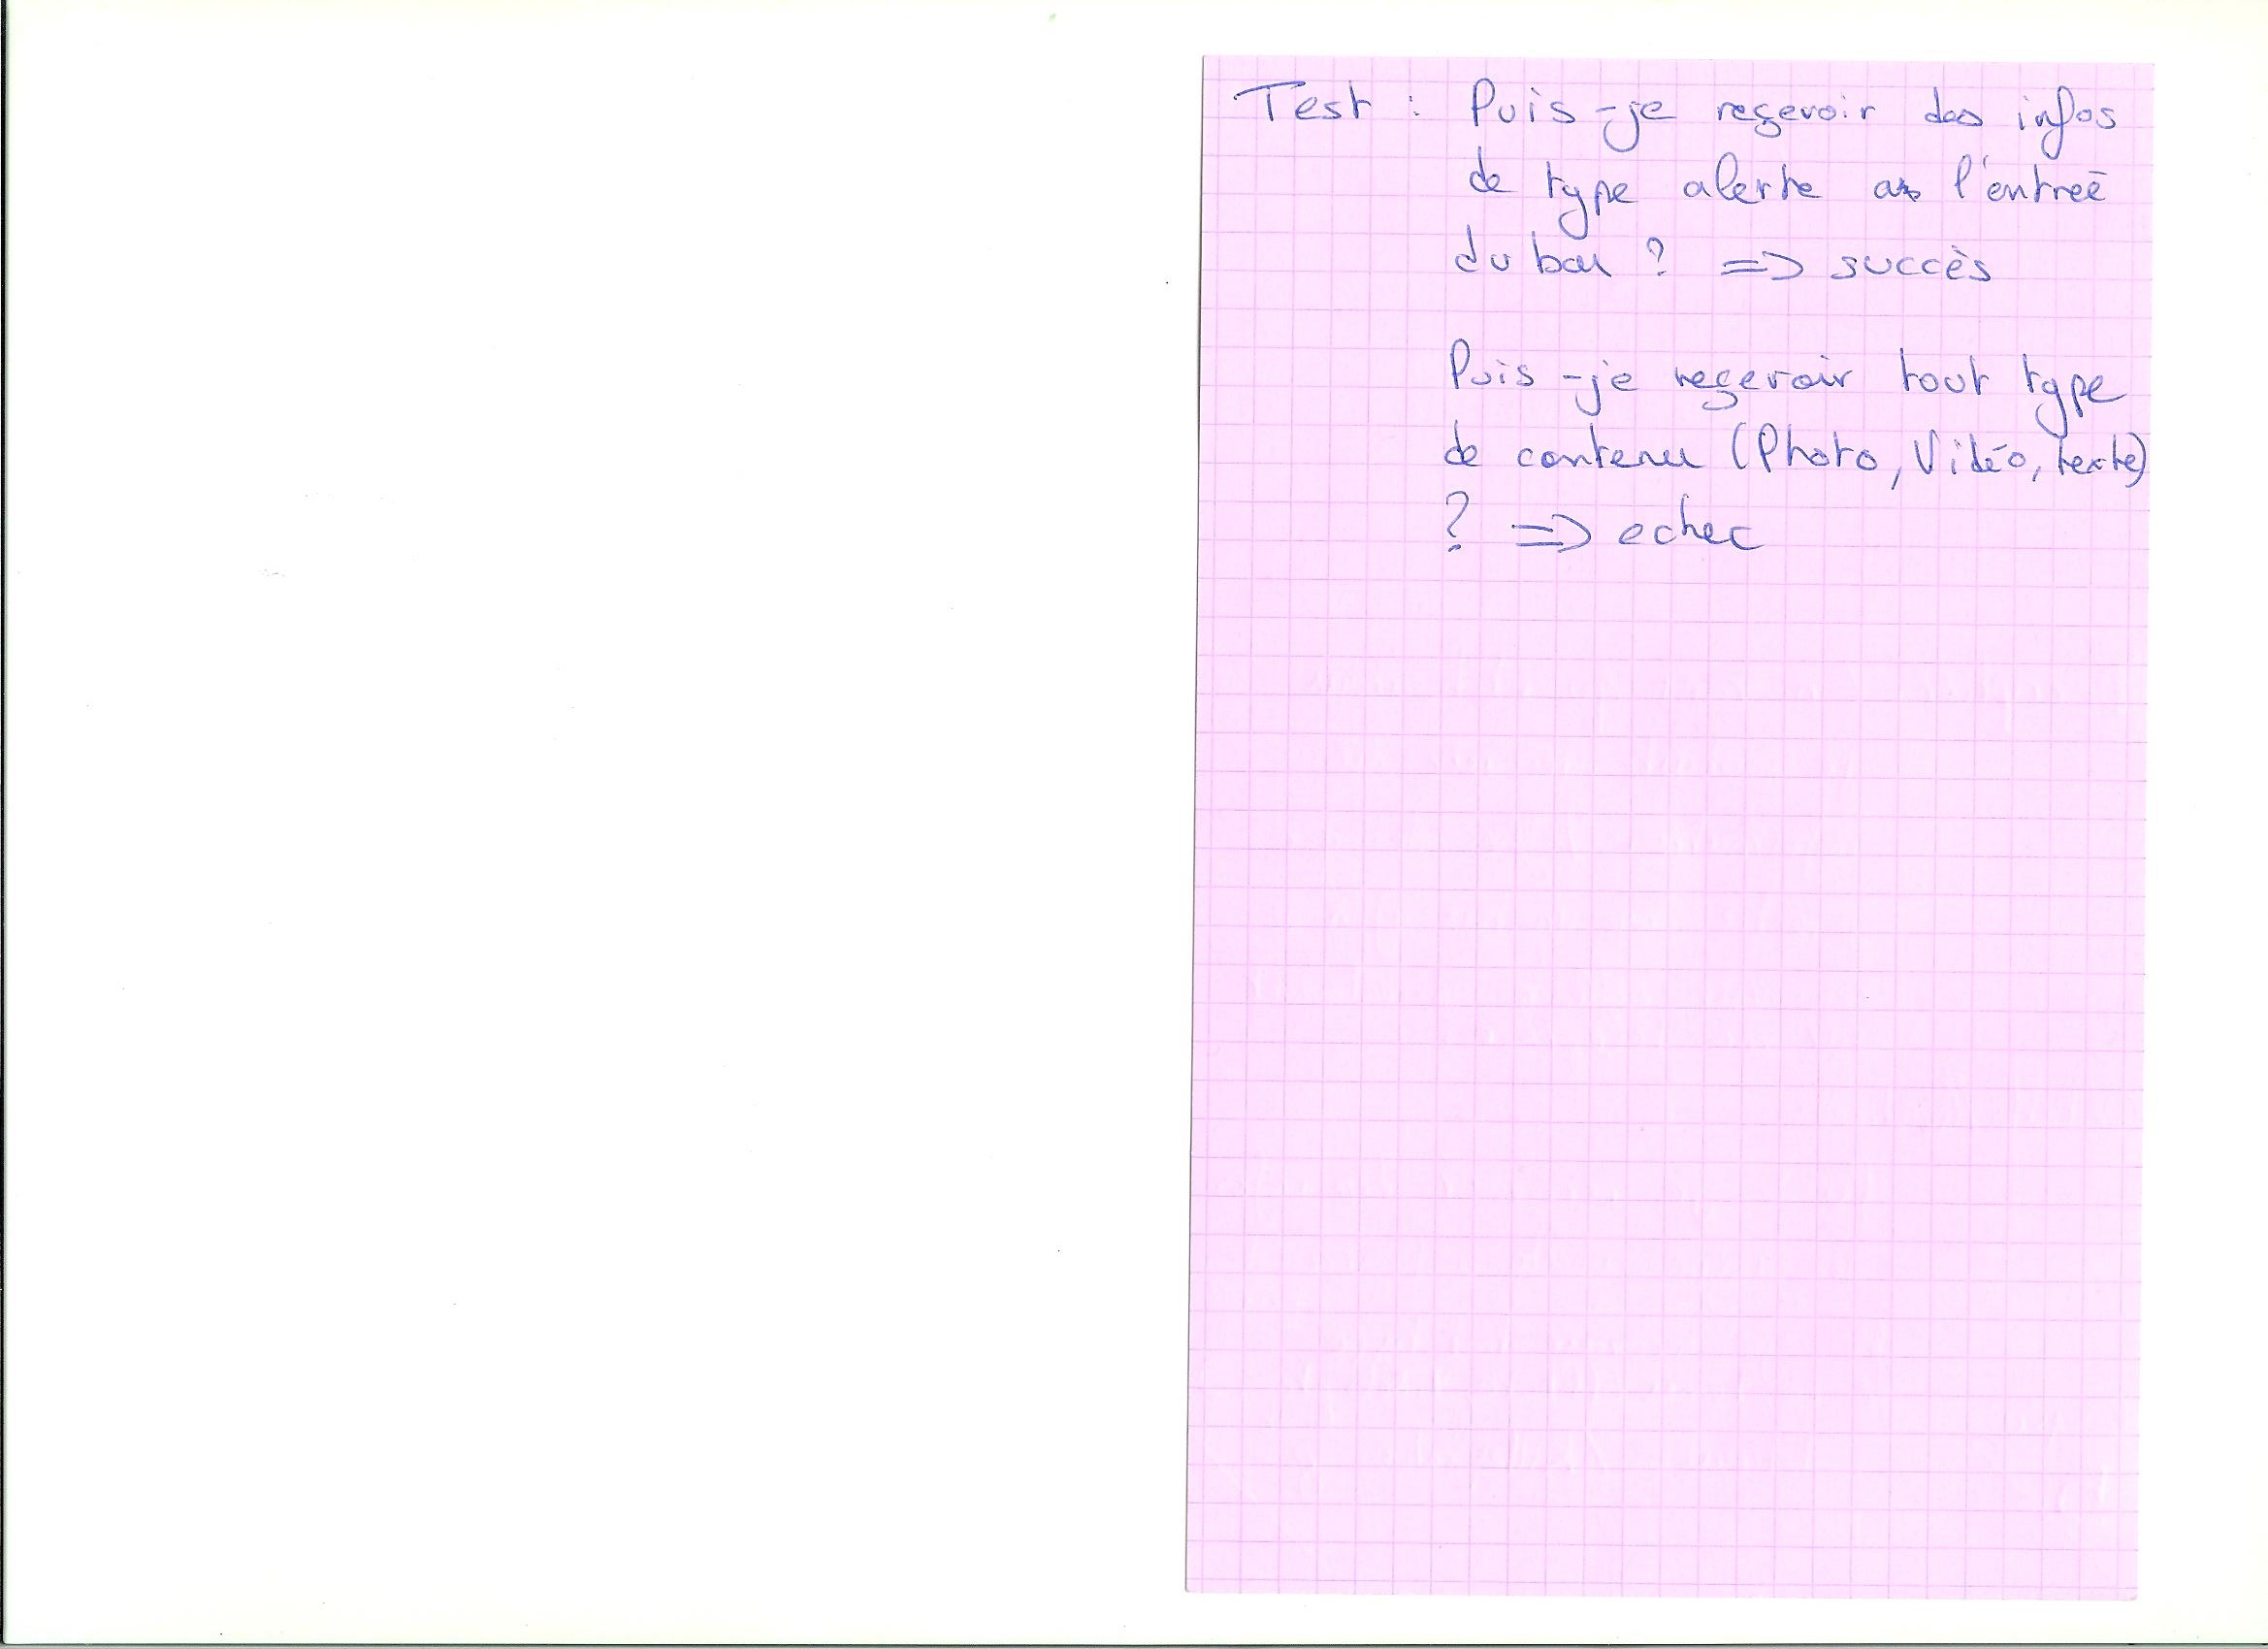 Test : Puis-je reçevoir des infos
de type alerte a l'entreé
du bar ? => succès
Puis-je reçevoir tout type
de contenu (Photo, Vidéo, texte)
? => echec